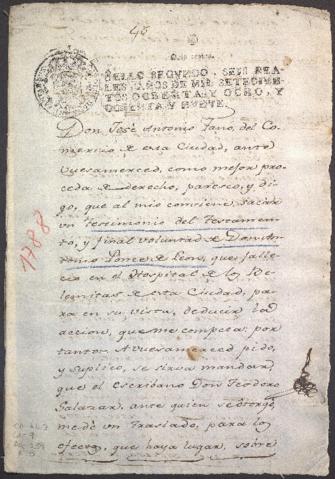 45
SELLO SEGVNDO, SEIS REA-
LES, AÑOS DE MIL SETECIEN-
TOS OCHENTA Y OCHO, Y
OCHENTA Y NUEVE.
Don José Antonio Fano, del Co-
mercio de esta Ciudad, ante
Vuesamerced, como mejor pro-
ceda de derecho, paresco, y di-
go, que al mio combiene sacar
un Testimonio del Testamen-
to, y final voluntad de Don An-
tonio Ponce de Leon, que falle-
ció en el Hospital de los Be-
lemnitas de esta Ciudad, pa-
ra en su vista, deducir la
accion, que me competa; por
tanto = A Vuesamerced pido,
y suplico, se sirva mandar,
que el Escribano Don Teodoro
Salazar, ante quien se otorgó,
me dé un Traslado, para los
efectos, que haya lugar, sobre
1788